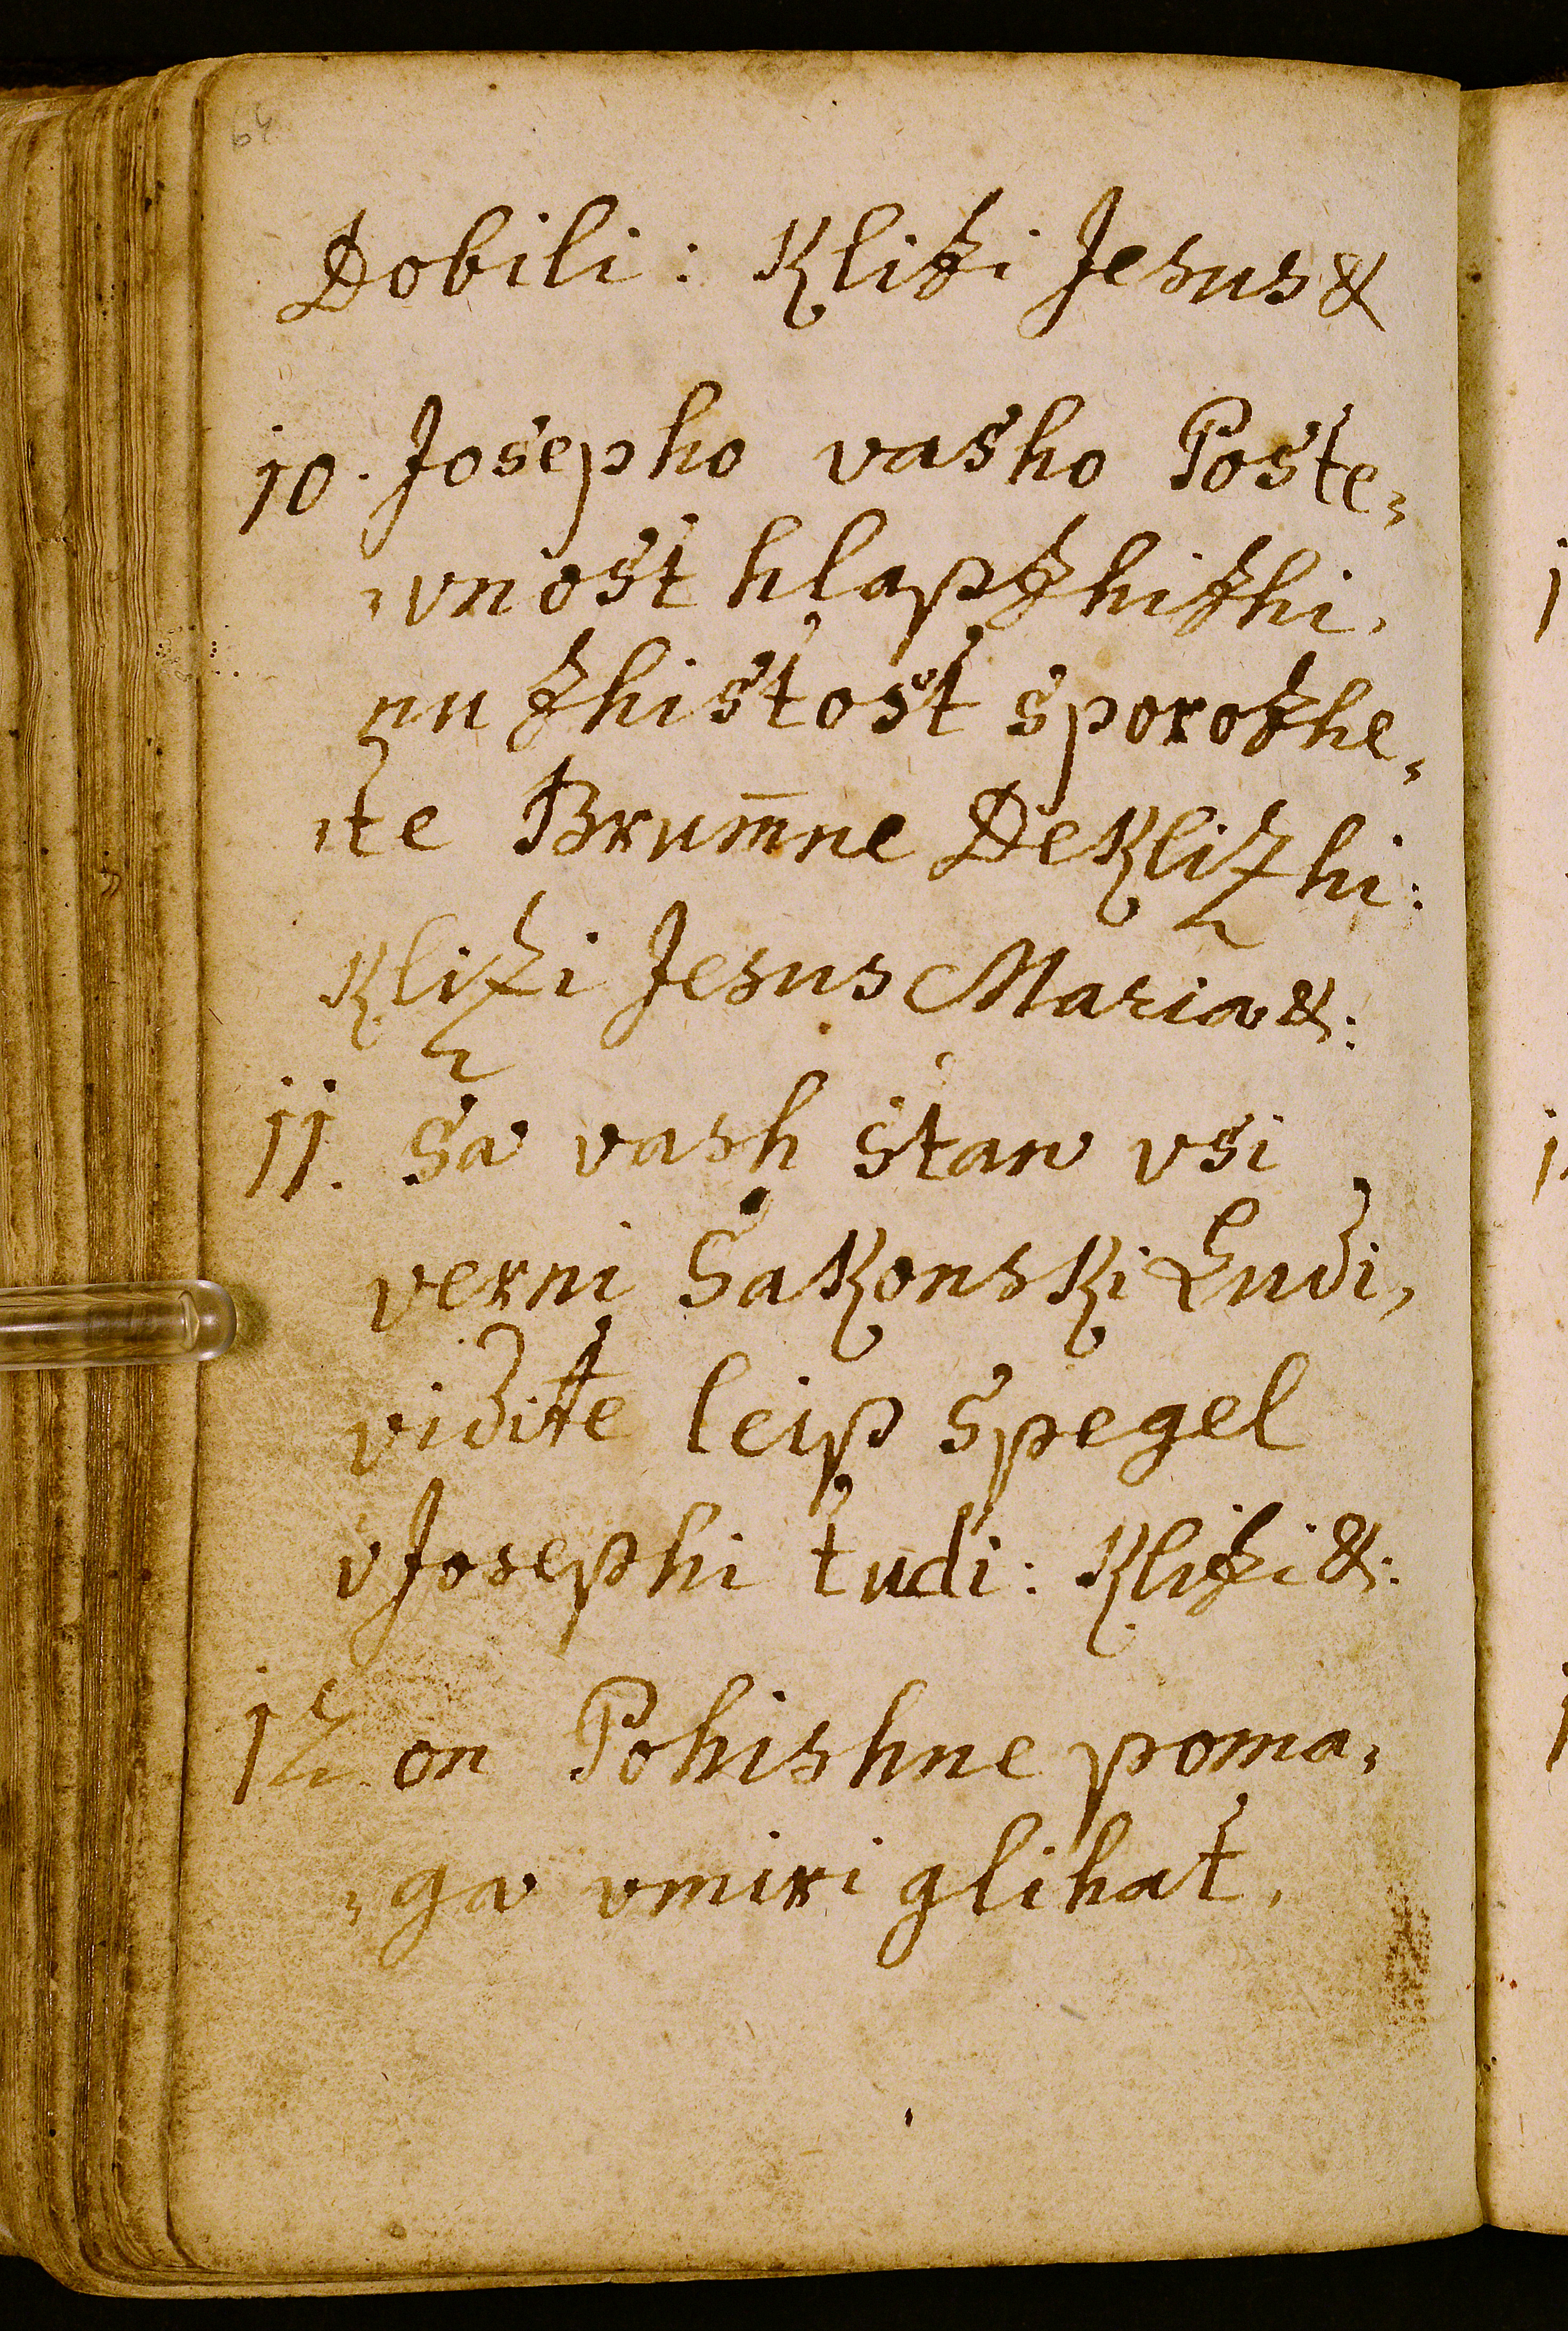 64
Dobili: Klizi Jesus &
10. Josepho vasho Poste=
=vnost hlapzhizhi,
nu zhistost sporozhe=
=te Brum̅ne Deklizhi:
Klizi Jesus Maria &:
11. Sa vash stan vsi
verni Sakonski Ludi,
vidite leip spegel
vJosephi tudi: Klizi &:
12 on Pohishne poma=
=ga vmiri glihat,